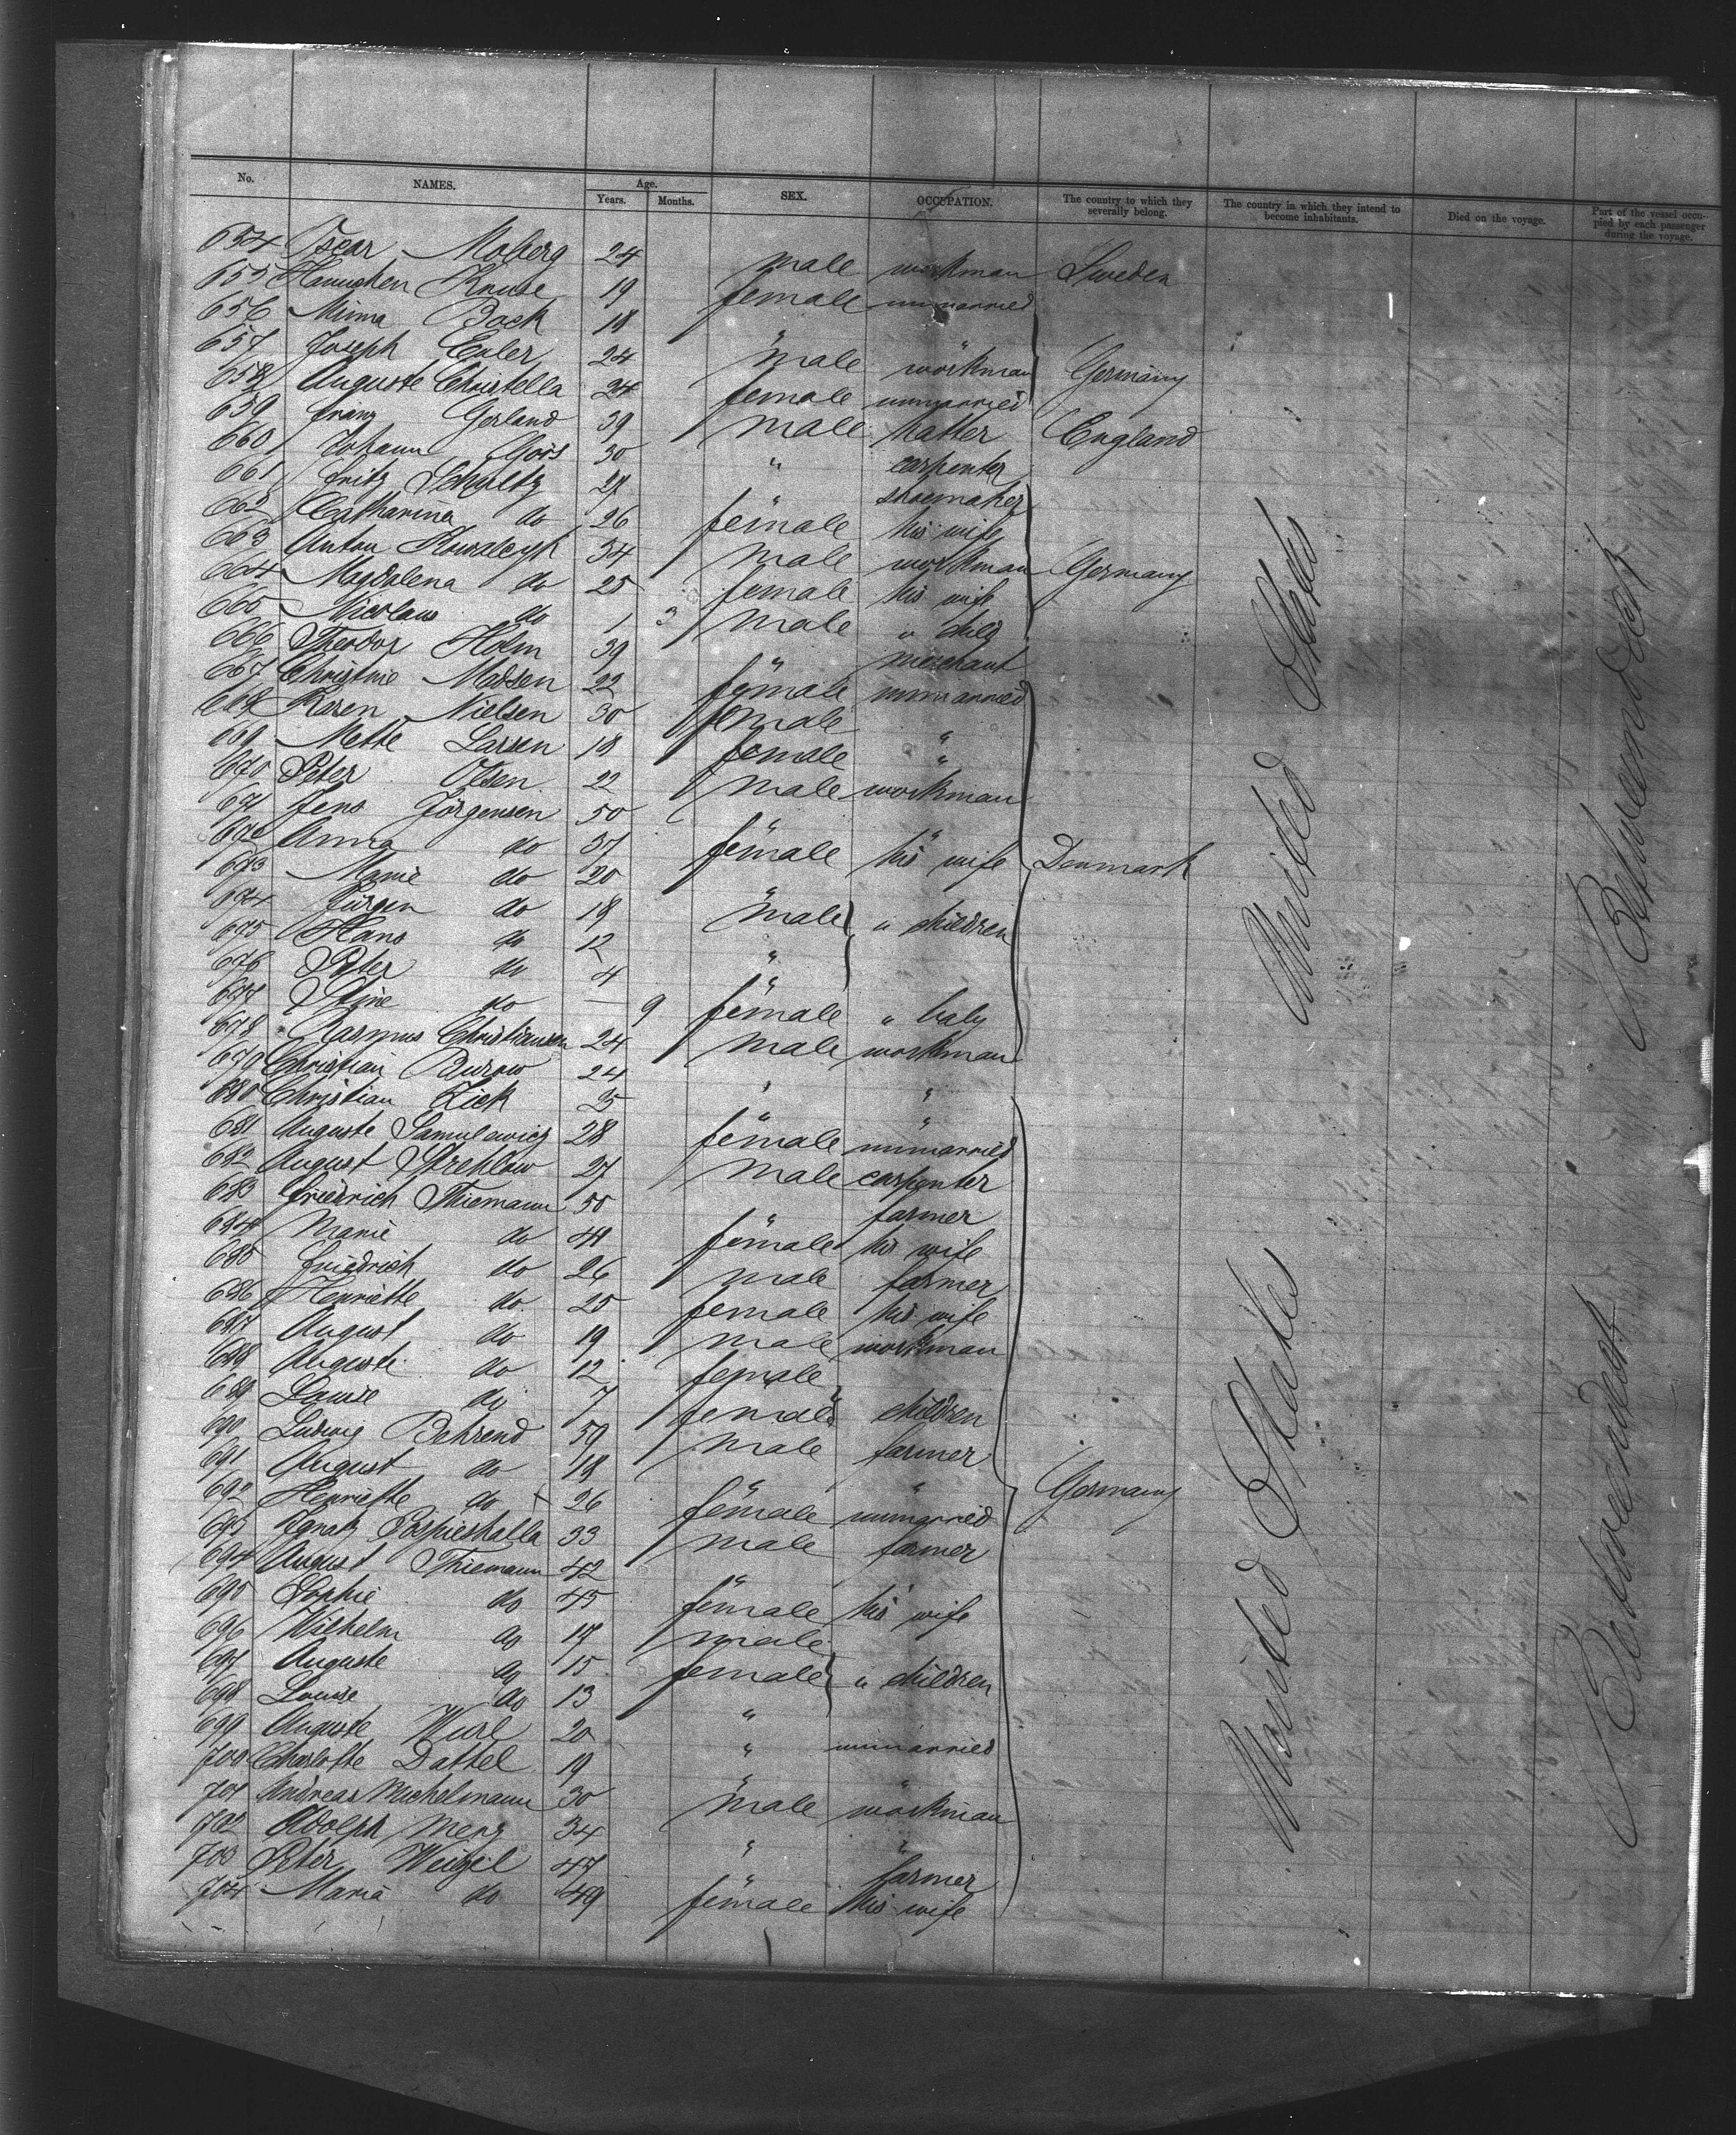 No. NAMES. Age. Years. Months. SEX. OCCUPATION. The country to which they severally belong. The country in which they intend to become inhabitants. Died on the voyage. Part of the vessel occupied by each passenger during the voyage.
654 Oscar Moberg 24 male workman Sweden
655 Kruse 19 female unmarried
656 Minna Bock 18 " "
657 Joseph Euler 24 male workman Germany
658 Auguste Christella 24 female unmarried
659 Franz Gerland 39 male hatter England
660 Johann 30 " carpenter
661 Fritz Schultz 27 " shoemaker
662 Catharina do 26 female his wife
663 Anton 34 male workman Germany
664 Magdalena do 25 female his wife
665 Nicolaus do 1 3 male " child
666 Theodor Holm 39 " merchant
667 Christine Madsen 22 female unmarried
668 Karen Nielsen 30 female "
669 Mette Larsen 18 female "
670 Peter Olsen 22 male workman
671 Jens Jörgensen 50 " "
672 Anna do 37 female his wife Denmark
673 Marie do 20 "
674 Jürgen do 18 male " children
675 Hans do 12 "
676 Peter do 4 "
677 Stine do — 9 female " baby
678 Rasmus Christiansen 24 male workman
679 Christian Burow 24 " "
680 Christian Zick 25 " "
681 Auguste Samulewicz 28 female unmarried
682 August Strehlow 27 male carpenter
683 Friedrich Thiemann 50 " farmer
684 Marie do 41 female his wife
685 Friedrich do 26 male farmer
686 Henriette do 25 female his wife
687 August do 19 male workman
688 Auguste do 12 female
689 Louise do 7 female children
690 Ludwig Behrend 59 male farmer
691 August do 18 " "
692 Henriette do 26 female unmarried Germany
693 Ignatz 33 male farmer
694 August Thiemann 42 " "
695 Sophie do 45 female his wife
696 Wilhelm do 17 male
697 Auguste do 15 female " children
698 Louise do 13 "
699 Auguste Wurl 20 " unmarried
700 Charlotte Dattel 19 " "
701 Andreas Michelmann 30 male workman
702 Adolph Merz 34 " "
703 Peter Weigel 47 " farmer
704 Maria do 49 female his wife
United States
United States
Betweendeck
Betweendeck